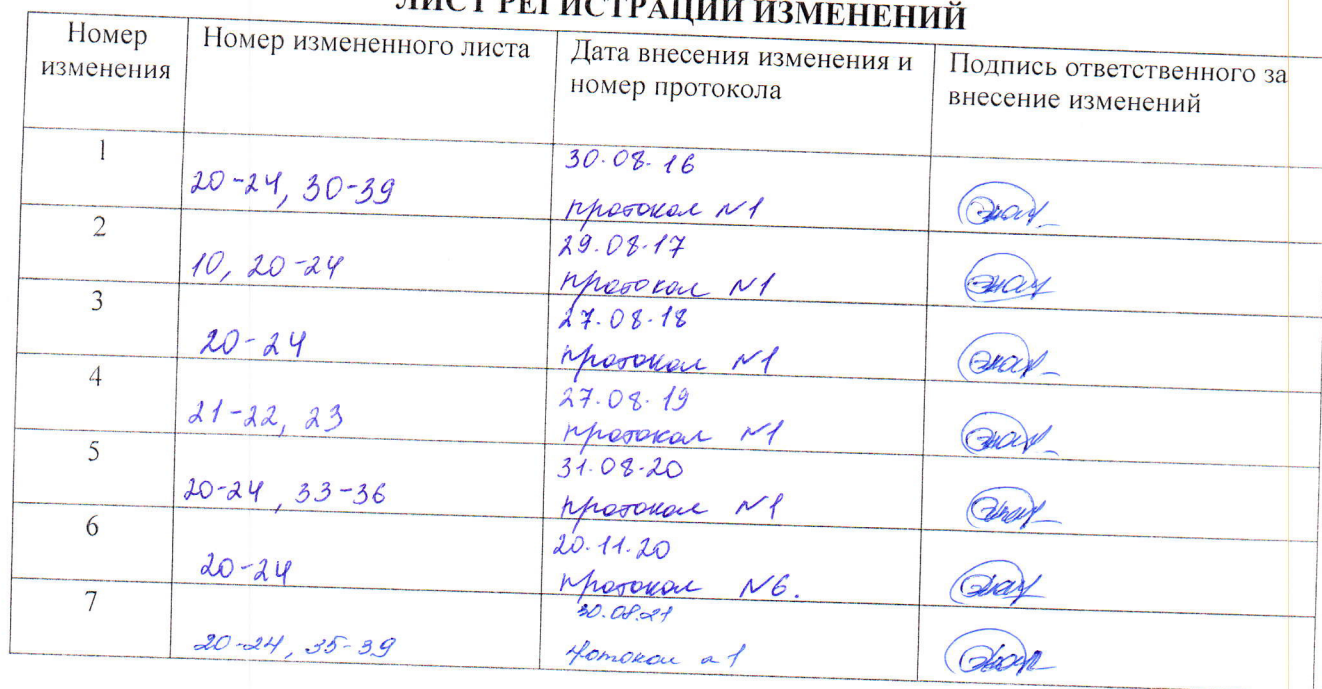 ЛИСТ РЕГИСТРАЦИИ ИЗМЕНЕНИЙ
Номер изменения
Номер измененного листа
Дата внесения изменения и номер протокола
Подпись ответственного за внесение изменений
1
20-24, 30-39
30.08.16
протокол №1
2
10, 20-24
29.08.17
протокол №1
3
20-24
27.08.18
протокол №1
4
21-22, 23
27.08.19
протокол №1
5
20-24, 33-36
31.08.20
протокол №1
6
20-24
20.11.20
протокол №6.
7
20-24, 35-39
30.08.21